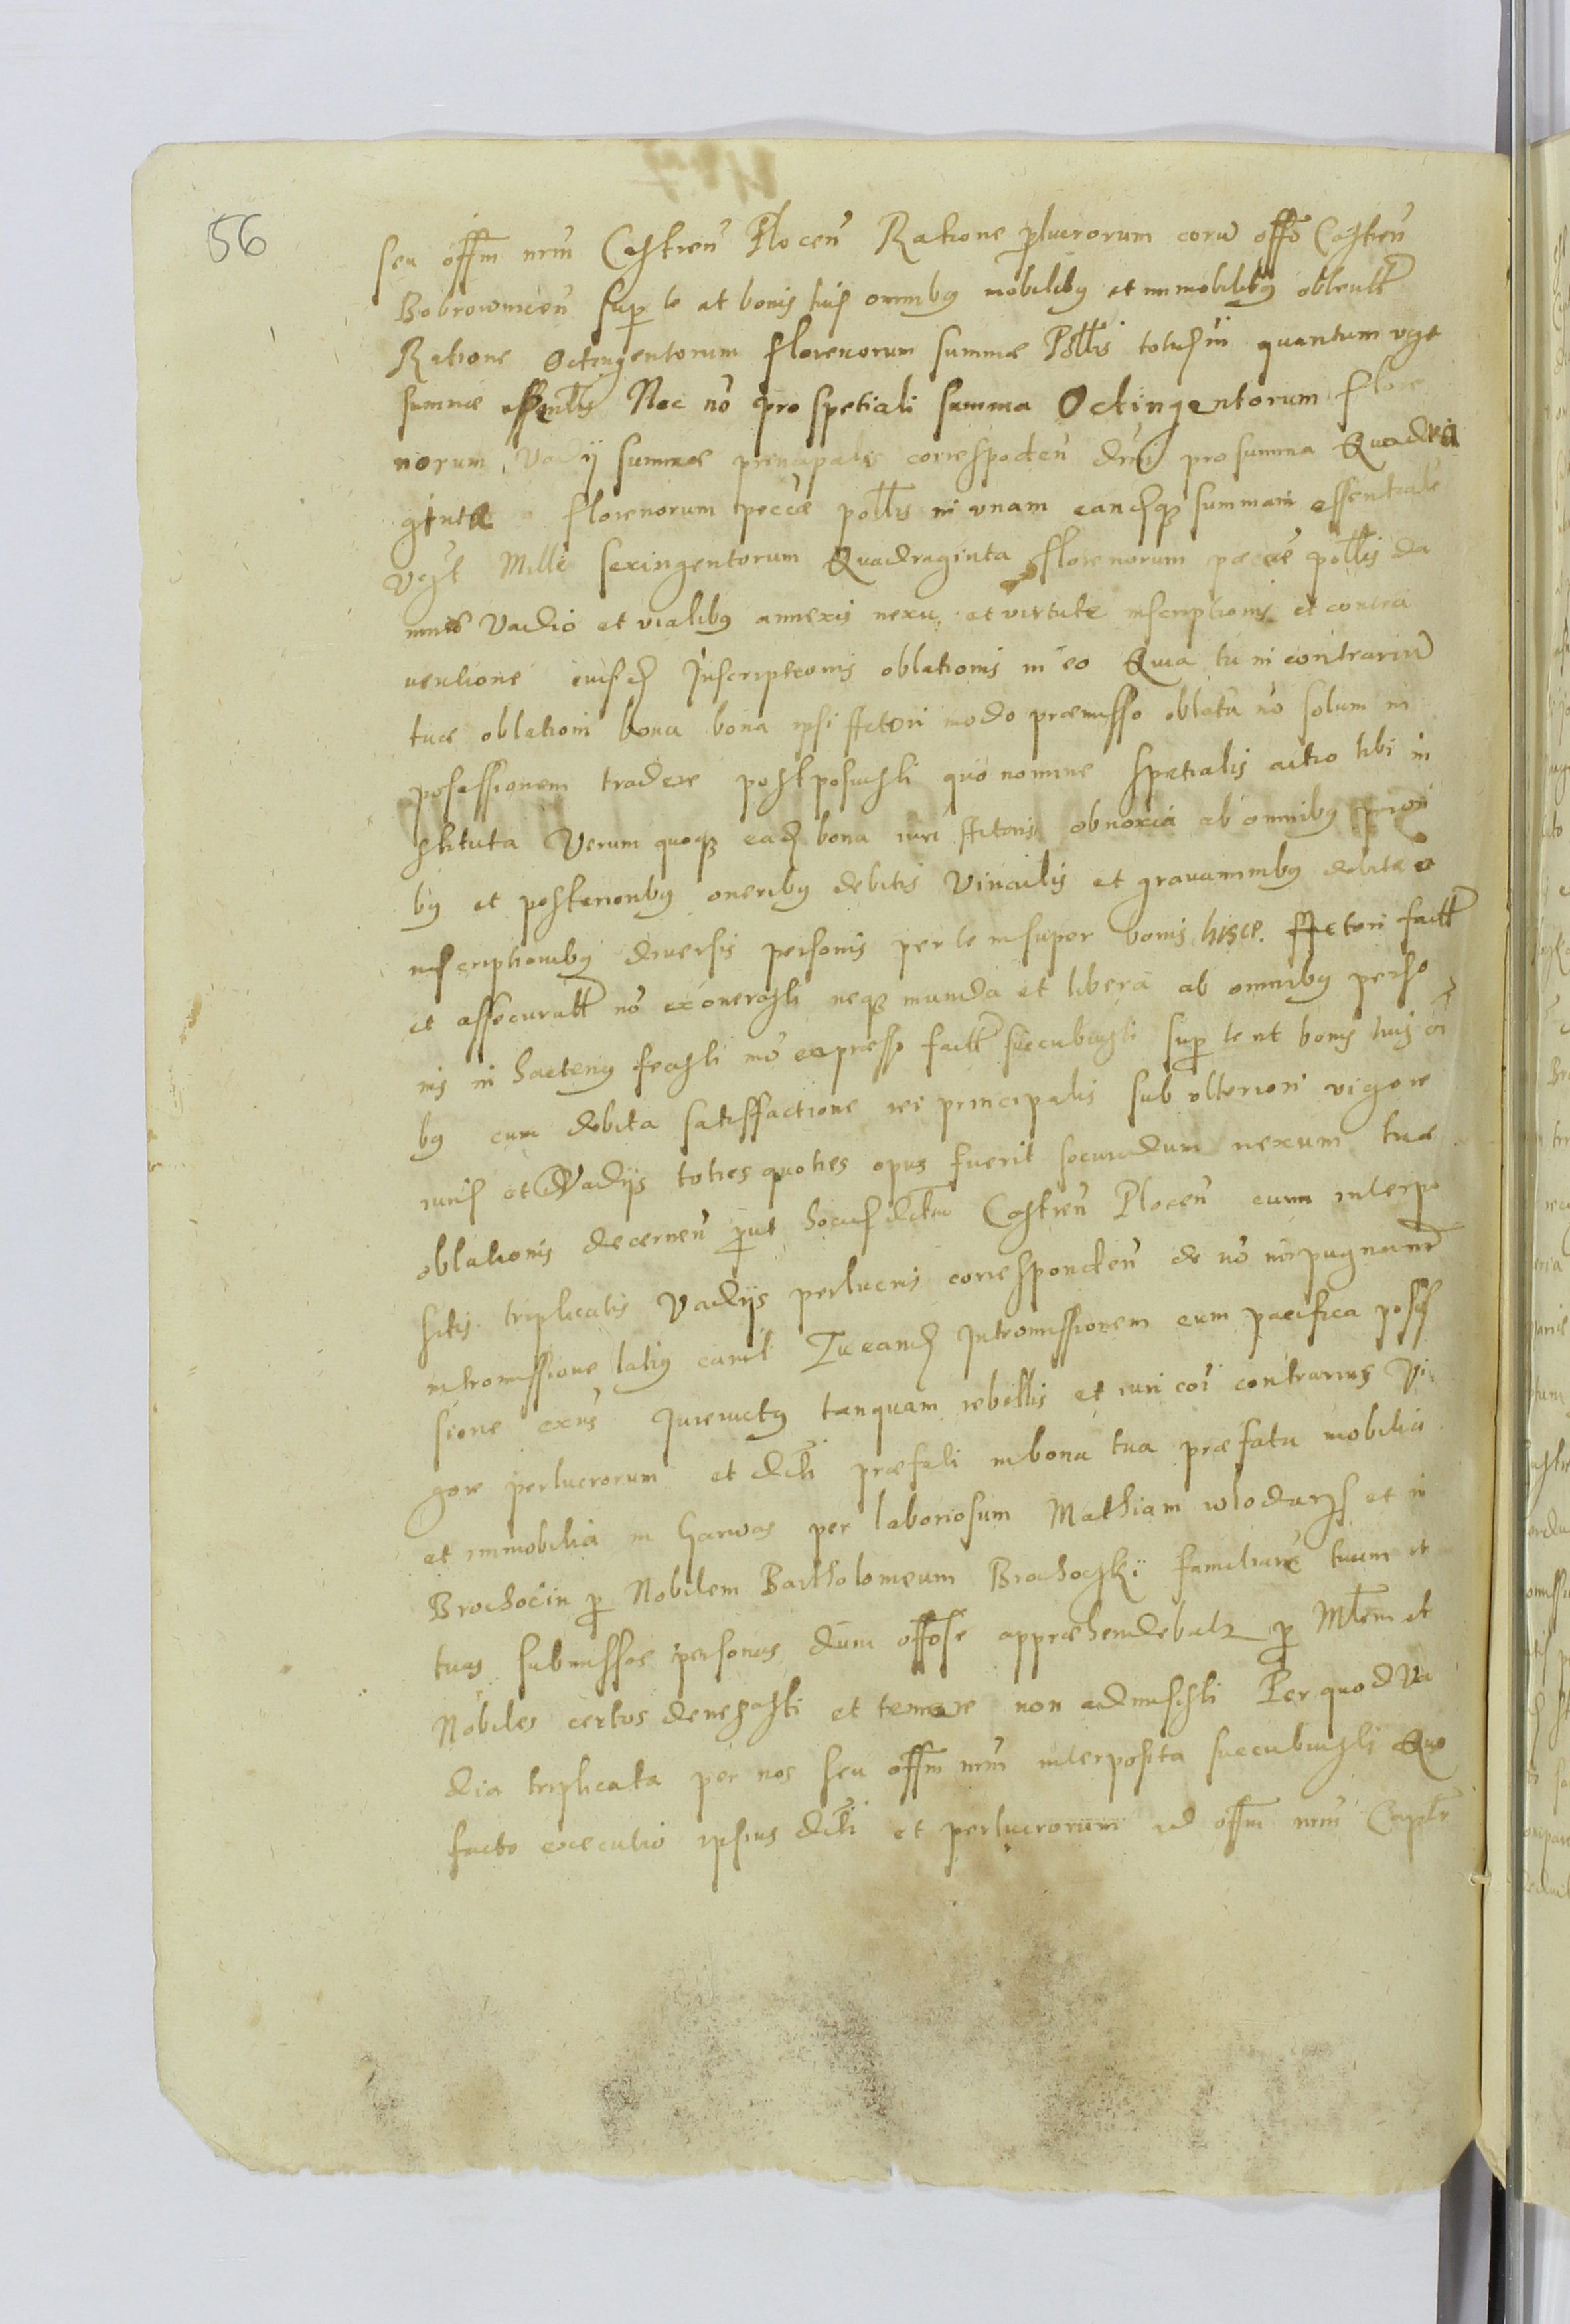 56
seu offm nrm Castren Plocen Ratione plucrorum coru offo Castren
Bobrownicen sup te et bonis tuis omnibus mobilibus et immobilibus obtentt
Ratione Octingentorum florenorum summae Pollis totusm quantum vigt
summae essentlis Nec no pro spetiali summa Octingentorum flore
norum Vadij summae principalis correspoden pro summa Quadra
ginta florenorum pecciae pollis in unam eandsq summam essentiale
Vigt Mille sexingentorum Quadraginta florenorum pecciae pollis da
mnis Vadio et vialibus annexis nexu et virtute inscriptionis et contra
ventione eiusd Inscriptionis oblationis in eo Quia tu in contrariu
tuae oblationi bona bona ipsi Actori modo praemisso oblata no solum in
posessionem tradere postposuisti quo nomine spetialis actio tibi in
stituta Verum quoq ead bona iuri Actoris obnoxia ab omnibus priori
bus et posterioribus oneribus debitis Vinculis et gravaminibus debitis
inscriptionibus diversis personis per te insuper bonis hisce Actori factt
et assecuratt no exonerasti neq munda et libera ab omnibus perso
nis in hactenus feasti mo expresso factt succubuisti sup te et bonis tuis oi
bus cum debita satisffactione rei principalis sub ulteriori vigore
iuris et Vadijs toties quoties opus fuerit secundum nexum tuae
oblationis decernen put hocus Castren Plocen cum interpo
sitis triplicatis Vadijs perlucris corresponden de no
intromissione latius canit Tu eand Intromissionem cum pacifica poses
sione Iurevictus tanquam rebellis et iuri coi contrarius Vi
gore perlucrorum et dcti praefati in bona tua praefata mobilia
et immobilia in Garwas per laboriosum Mathiam wlodarz et in
Brochocin p Nobilem Bartholomeum Brochoczki familiare tuum et
tuas submissas personas dum offose appraehendebatr p Mtem et
Nobiles certos denegasti et temere non admisisti Per quod Va
dia triplicata per nos seu offm nrm interposita succubuisti Quo
facto executio ipsius dcti et perlucrorum ad offm nrm Capte